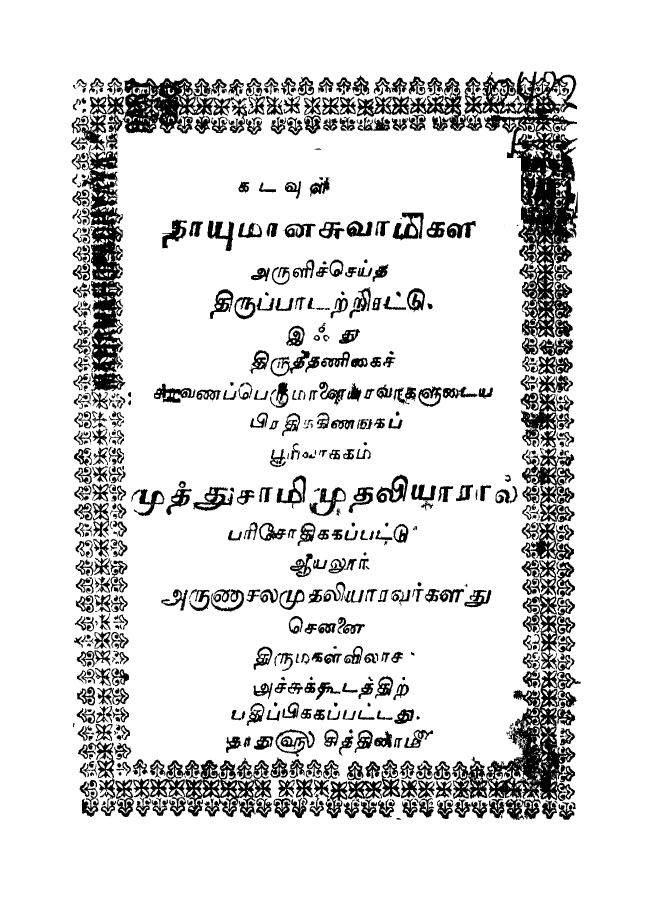 கடவுள்
தாயுமானசுவாமிகள
அருளிச்செய்த
திருப்பாடற்றிரட்டு.
இஃது
திருத்தணிகைச்
சரவணப்பெருமாளையரவர்களுடைய
பிரதிக்கிணங்கப்
பூவிருந்தவல்லி
முத்துசாமிமுதலியாரால்
பரிசோதிககப்பட்டு
ஆயலூர்
அருணாசலமுதலியாரவர்களது
சென்னை
திருமகள்விலாச
அச்சுக்கூடத்திற்
பதிப்பிககப்பட்டது.
தாதுளு சித்திரைமீ